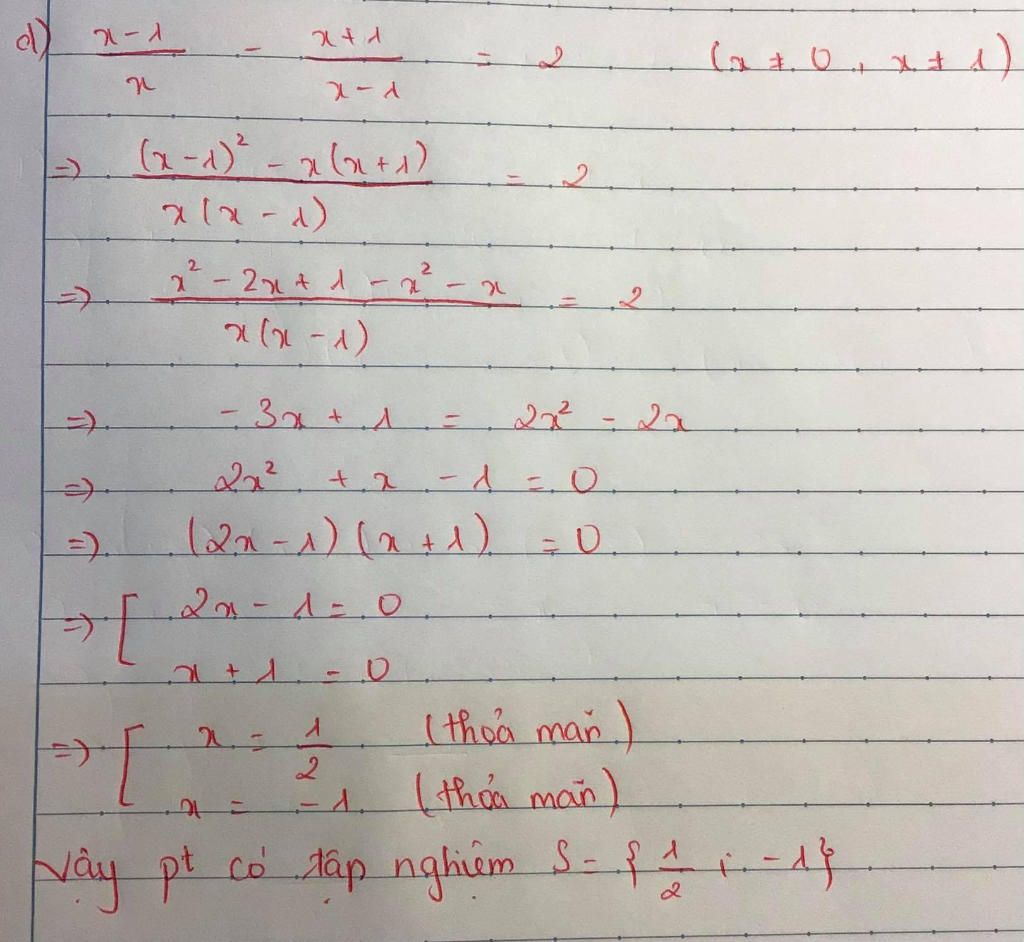 d) \frac{x-1}{x} - \frac{x+1}{x-1} = 2 (x ≠ 0, x ≠ 1)
=> \frac{(x-1)^2 - x(x+1)}{x(x-1)} = 2
=> \frac{x^2 - 2x + 1 - x^2 - x}{x(x-1)} = 2
=> -3x + 1 = 2x^2 - 2x
=> 2x^2 + x - 1 = 0
=> (2x-1)(x+1) = 0
=> [ 2x - 1 = 0
x + 1 = 0
=> [ x = \frac{1}{2} (thoả mãn)
x = -1 (thoả mãn)
Vậy pt có tập nghiệm S = {\frac{1}{2}; -1}